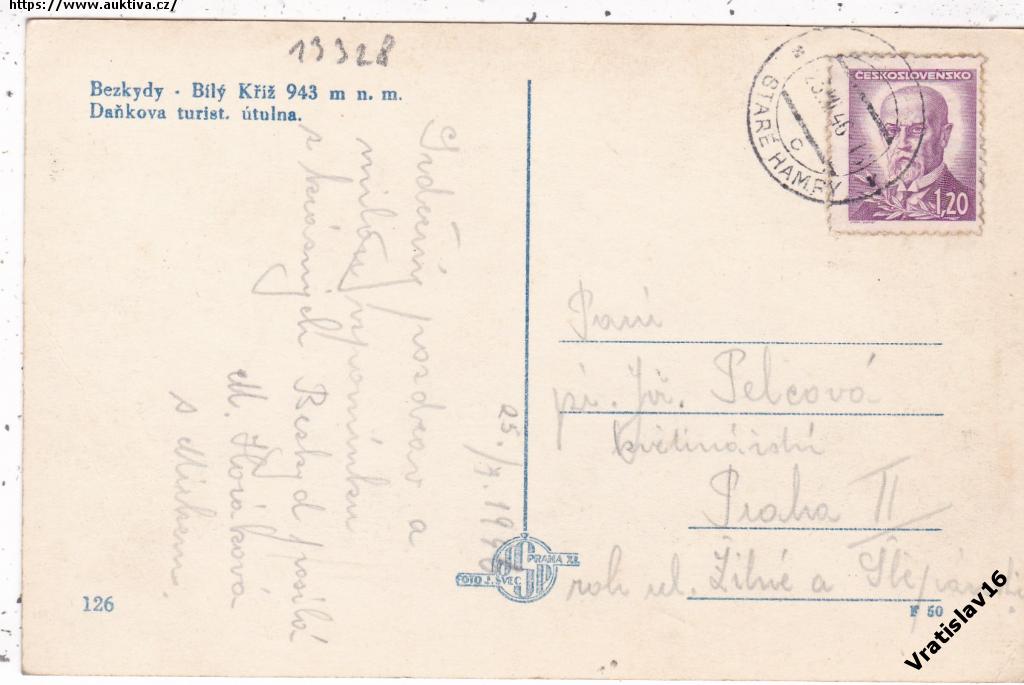 https://www.auktiva.cz/
13328
Bezkydy - Bílý Kříž 943 m n. m.
Daňkova turist. útulna.
Srdečný pozdrav a
milou vzpomínku
s krásných Beskyd posílá
M. Horáková
s Mirkem.
25./7. 1946
ČESKOSLOVENSKO
1,20
STARÉ HAMRY
C
Paní
Jiř. Pelcová
květinářství
Praha II
roh ul. Žitné a Štěpánské
FOTO J. ŠVEC PRAHA XI.
126
F 50
Vratislav16